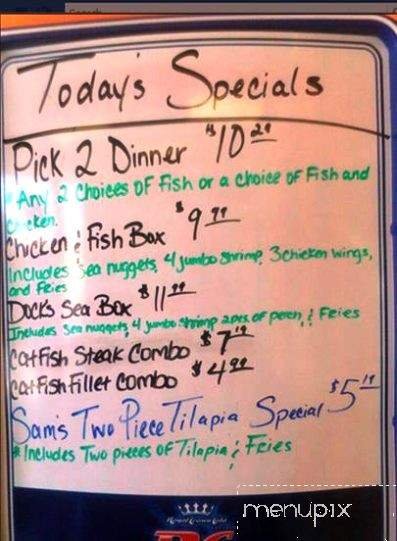 Today's Specials
Pick 2 Dinner $10 29
* Any 2 Choices OF Fish or a choice OF Fish and
chicken.
Chicken & Fish Box $9 99
Includes Sea nuggets, 4 jumbo shrimp, 3 chicken wings,
and Fries
Dock's Sea Box $11 99
Includes Sea nuggets, 4 jumbo shrimp 2pcs. of perch, & Fries
CatFish Steak Combo $7 19
CatFish Fillet Combo $4 99
Sam's Two Piece Tilapia Special $5 19
* Includes Two pieces of Tilapia & Fries
Royal Crown Cola
RC
menupix